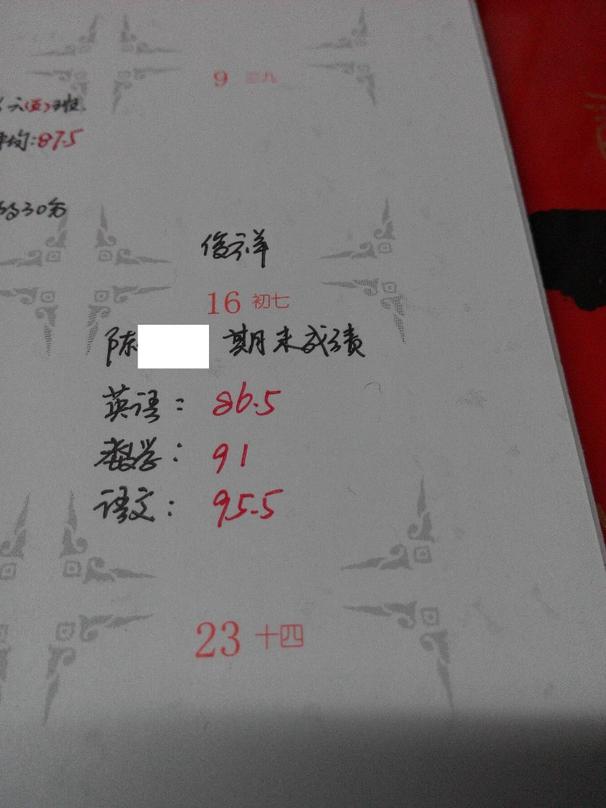 9 三九
六(页)班
平均:87.5
30分
俊祥
16 初七
陈 期末成绩
英语: 86.5
数学: 91
语文: 95.5
23 十四